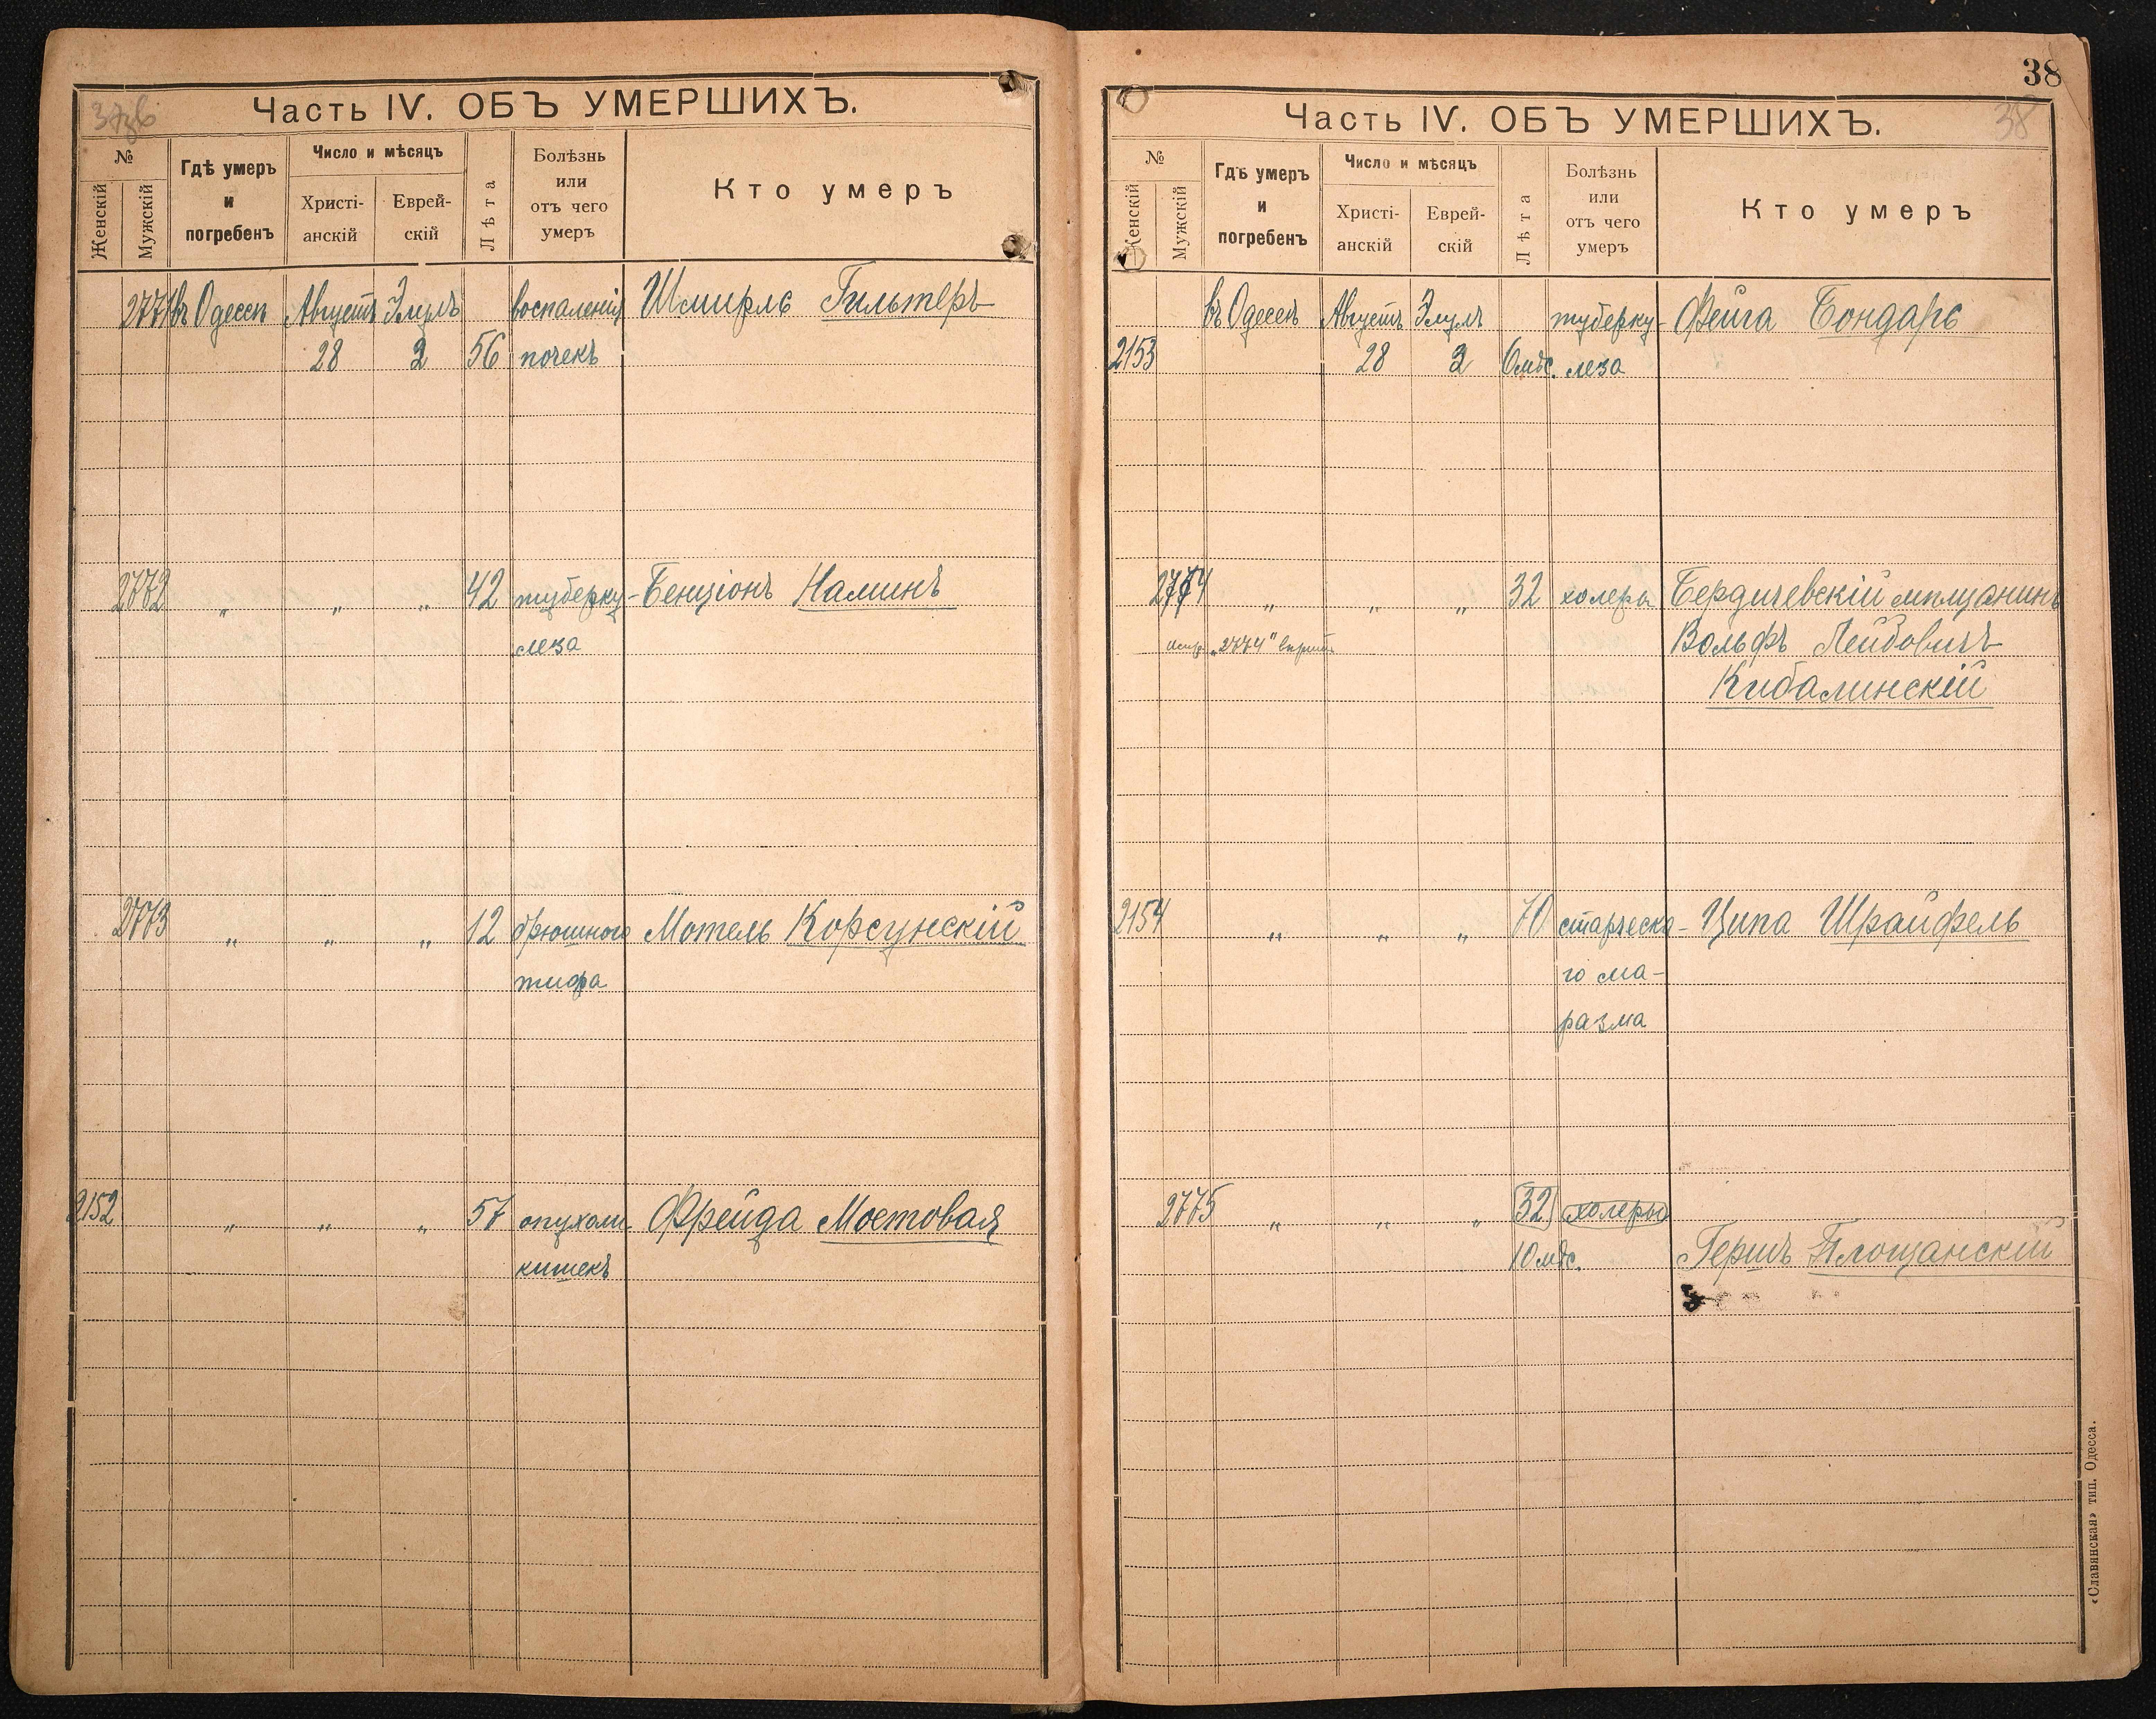 37об
Часть IV. ОБЪ УМЕРШИХЪ.
№
Женскій
Мужскій
Гдѣ умеръ и погребенъ
Число и мѣсяцъ
Христі-
анскій
Еврей-
скій
Лѣта
Болѣзнь
или
отъ чего
умеръ
Кто умеръ
2771 въ Одессѣ Августъ Элулъ воспаленія Шмирль Гильтеръ
28 2 56 почекъ
2772 " " " 42 туберку- Бенціонъ Наминъ
леза
2773 " " " 12 брюшного Мотель Корсунскій
тифа
2152 " " " 57 опухоли Фрейда Мостовая
кишекъ
38
38
Часть IV. ОБЪ УМЕРШИХЪ.
№
Женскій
Мужскій
Гдѣ умеръ
и
погребенъ
Число и мѣсяцъ
Христі-
анскій
Еврей-
скій
Лѣта
Болѣзнь
или
отъ чего
умеръ
Кто умеръ
въ Одессѣ Августъ Элулъ туберку- Фейга Бондарь
2153 28 2 6 мѣс. леза
2774 " " " 32 холеры Бердичевскій мѣщанинъ
"2774" Вольфъ Лейбовичъ
Кибалинскій
2154 " " " 70 старческа- Ципа Шрайфель
го ма-
разма
2775 " " " 32 холеры
10 мѣс. Гершъ Площанскій
«Славянская» тип. Одесса.